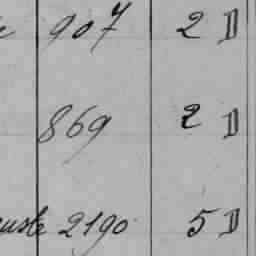 907 2 D
869 2 D
2190 5 D